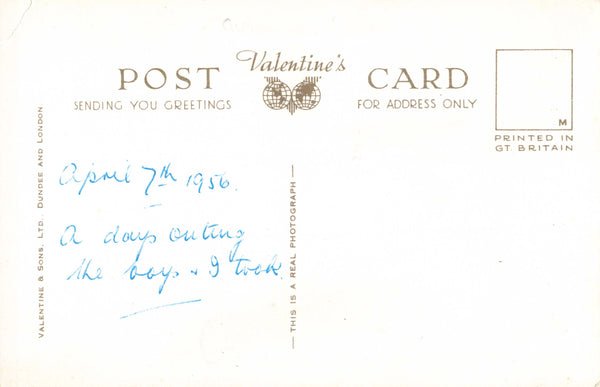 Valentine's
POST CARD
SENDING YOU GREETINGS
FOR ADDRESS ONLY
M
PRINTED IN
GT. BRITAIN
VALENTINE & SONS, LTD., DUNDEE AND LONDON
April 7th 1956.
A days outing
the boys & I took.
— THIS IS A REAL PHOTOGRAPH —